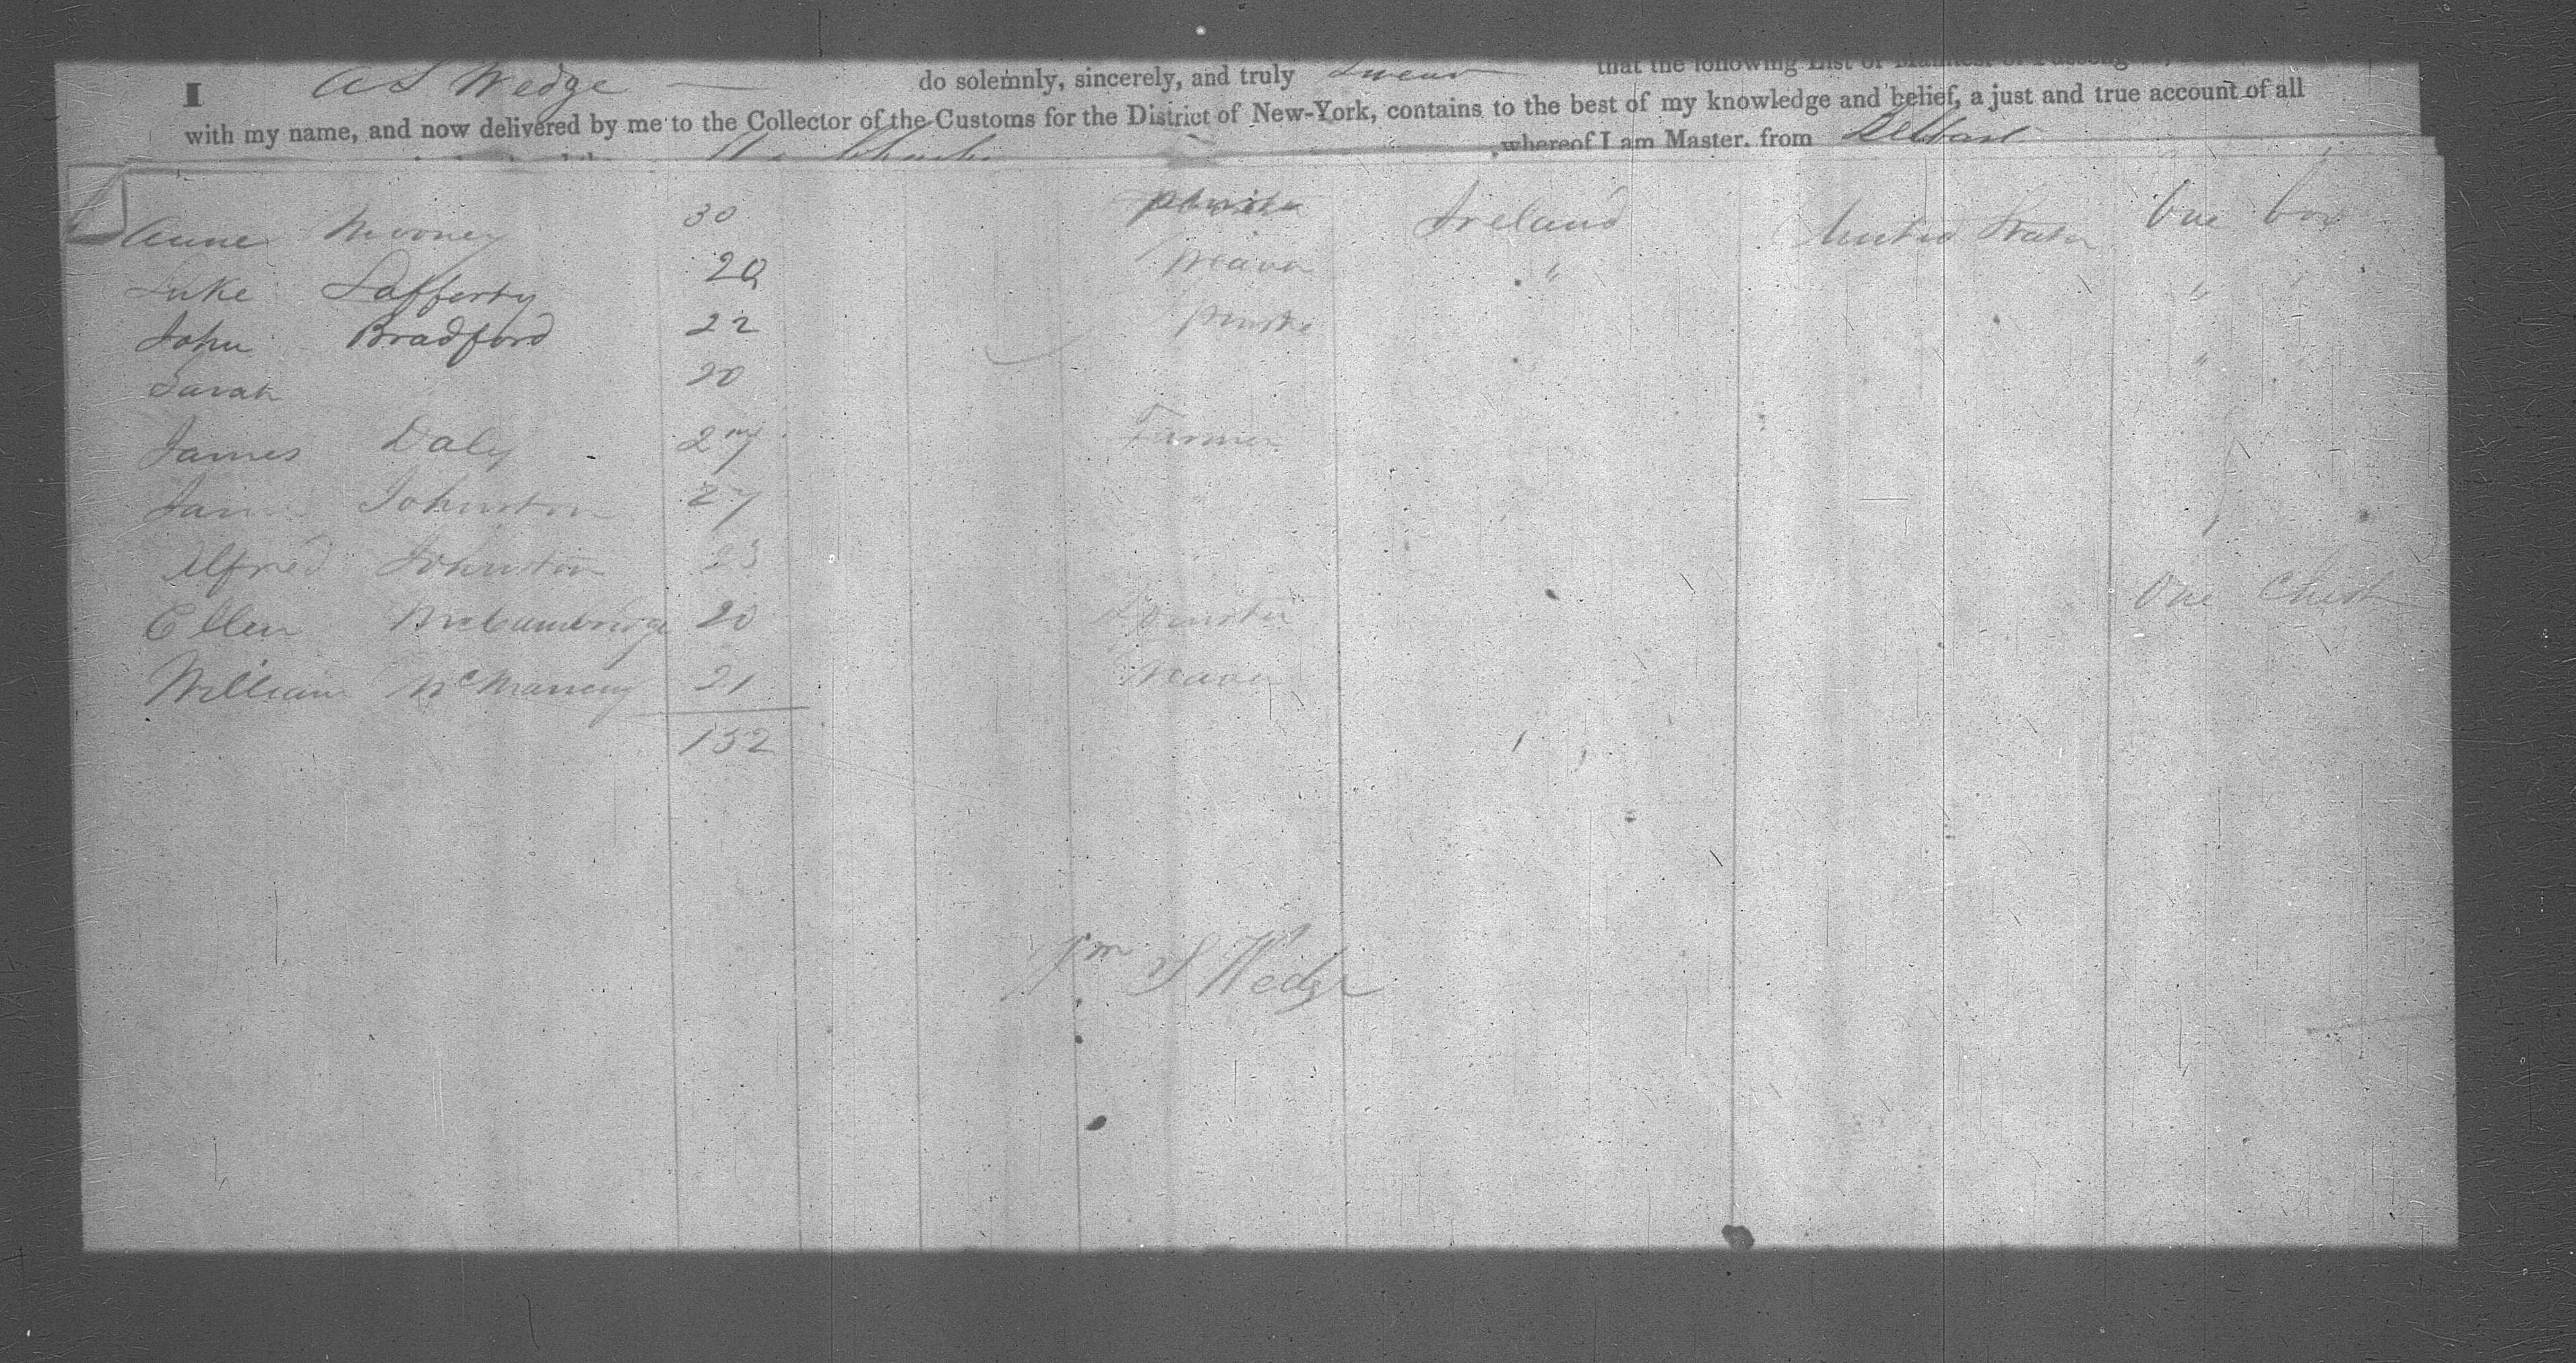 I W S Wedge do solemnly, sincerely, and truly Swear that the following List or Manifest of
with my name, and now delivered by me to the Collector of the Customs for the District of New-York, contains to the best of my knowledge and belief, a just and true account of all
whereof I am Master, from Belfast
Anne Mooney 30 Ireland United States One box
Luke Lafferty 20 Weaver " " "
John Bradford 22 " "
Sarah 20
James Daly 27 Farmer
Johnston 27
Alfred Johnston 23
Ellen McCambridge 20 Spinster One Chest
William 21 Weaver
152
Wm S Wedge